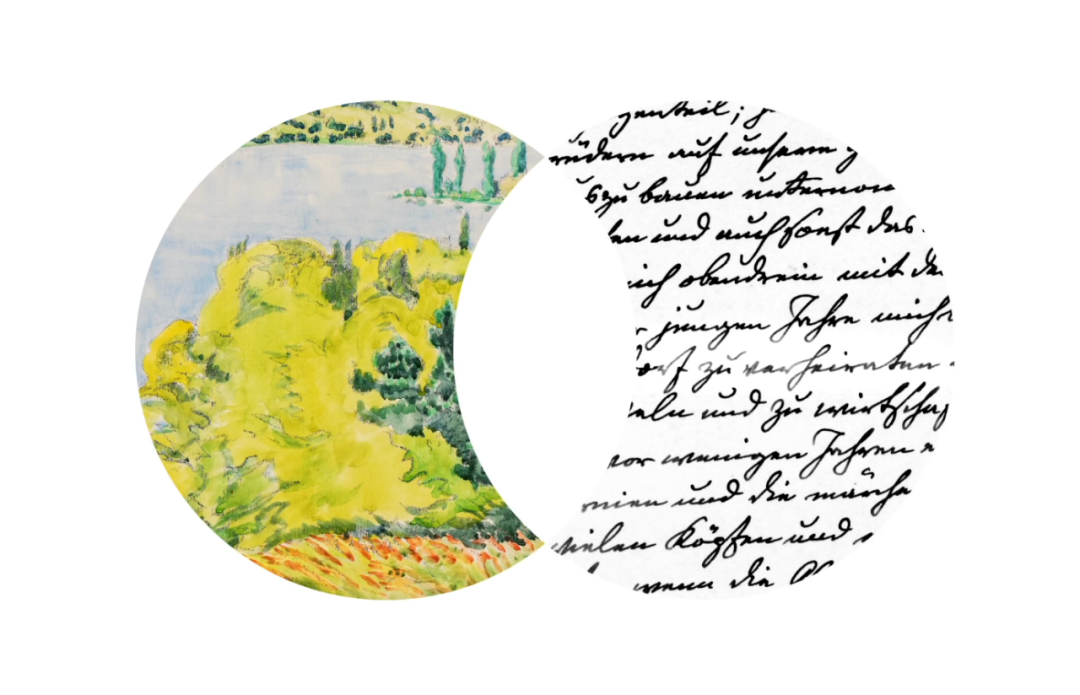 genteil; j
rüdern auf unserem
szu bauen unternom
en und auch sonst das
ich obendrein mit de
r jungen Jahre mich
orf zu verheiraten
eln und zu wirtschaf
vor wenigen Jahren e
rnien und die märcha
vielen Köpfen und
wenn die